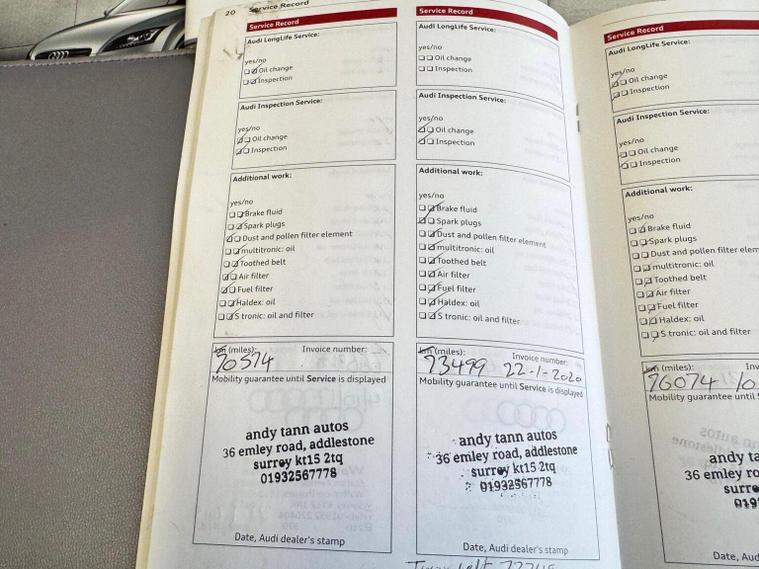 20 Service Record
Service Record
Audi LongLife Service:
yes/no
Oil change
Inspection
Audi Inspection Service:
yes/no
Oil change
Inspection
Additional work:
yes/no
Brake fluid
Spark plugs
Dust and pollen filter element
multitronic: oil
Toothed belt
Air filter
Fuel filter
Haldex: oil
S tronic: oil and filter
km (miles): Invoice number:
70574
Mobility guarantee until Service is displayed
andy tann autos
36 emley road, addlestone
surrey kt15 2tq
01932567778
Date, Audi dealer's stamp
Service Record
Audi LongLife Service:
yes/no
Oil change
Inspection
Audi Inspection Service:
yes/no
Oil change
Inspection
Additional work:
yes/no
Brake fluid
Spark plugs
Dust and pollen filter element
multitronic: oil
Toothed belt
Air filter
Fuel filter
Haldex: oil
S tronic: oil and filter
km (miles): Invoice number:
73499 22-1-2020
Mobility guarantee until Service is displayed
andy tann autos
36 emley road, addlestone
surrey kt15 2tq
01932567778
Date, Audi dealer's stamp
Service Record
Audi LongLife Service:
yes/no
Oil change
Inspection
Audi Inspection Service:
yes/no
Oil change
Inspection
Additional work:
yes/no
Brake fluid
Spark plugs
Dust and pollen filter elem
multitronic: oil
Toothed belt
Air filter
Fuel filter
Haldex: oil
S tronic: oil and filter
km (miles): Inv
76074 10
Mobility guarantee until S
andy ta
36 emley ro
surre
019
Date, Au